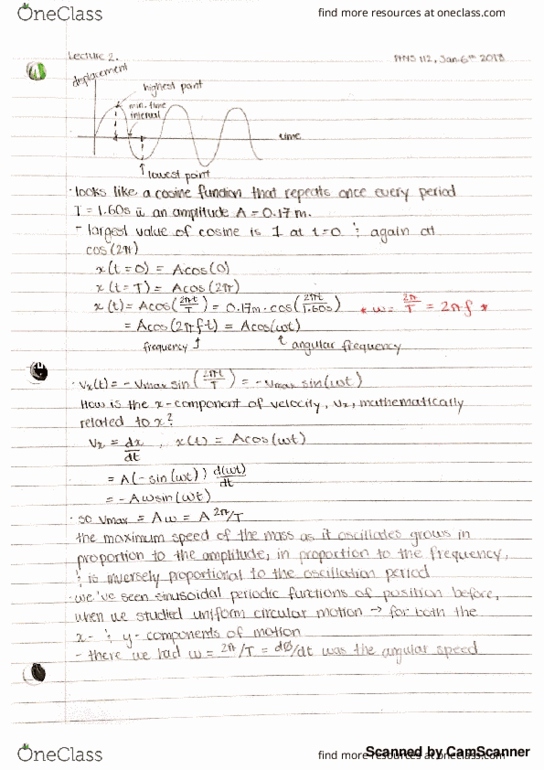 OneClass
find more resources at oneclass.com
Lecture 2.
PHYS 112, Jan 6th 2018
displacement
highest point
min. time
interval
time
lowest point
· looks like a cosine function that repeats once every period
T = 1.60s w̄ an amplitude A = 0.17 m.
- largest value of cosine is 1 at t=0 & again at
cos(2π)
x(t=0) = Acos(0)
x(t=T) = Acos(2π)
x(t) = Acos(2πt/T) = 0.17m·cos(2πt/1.60s) * ω = 2π/T = 2πf *
= Acos(2πf·t) = Acos(ωt)
frequency ↑ ↑ angular frequency
· Vx(t) = -Vmax sin(2πt/T) = -Vmax sin(ωt)
How is the x-component of velocity, Vx, mathematically
related to x?
Vx = dx/dt , x(t) = Acos(ωt)
= A(-sin(ωt)) d(ωt)/dt
= -Aωsin(ωt)
· so Vmax = Aω = A 2π/T
the maximum speed of the mass as it oscillates grows in
proportion to the amplitude, in proportion to the frequency,
& is inversely proportional to the oscillation period
· we've seen sinusoidal periodic functions of position before,
when we studied uniform circular motion → for both the
x- & y- components of motion
- there we had ω = 2π/T = dø/dt was the angular speed
OneClass
find more resources at oneclass.com
Scanned by CamScanner